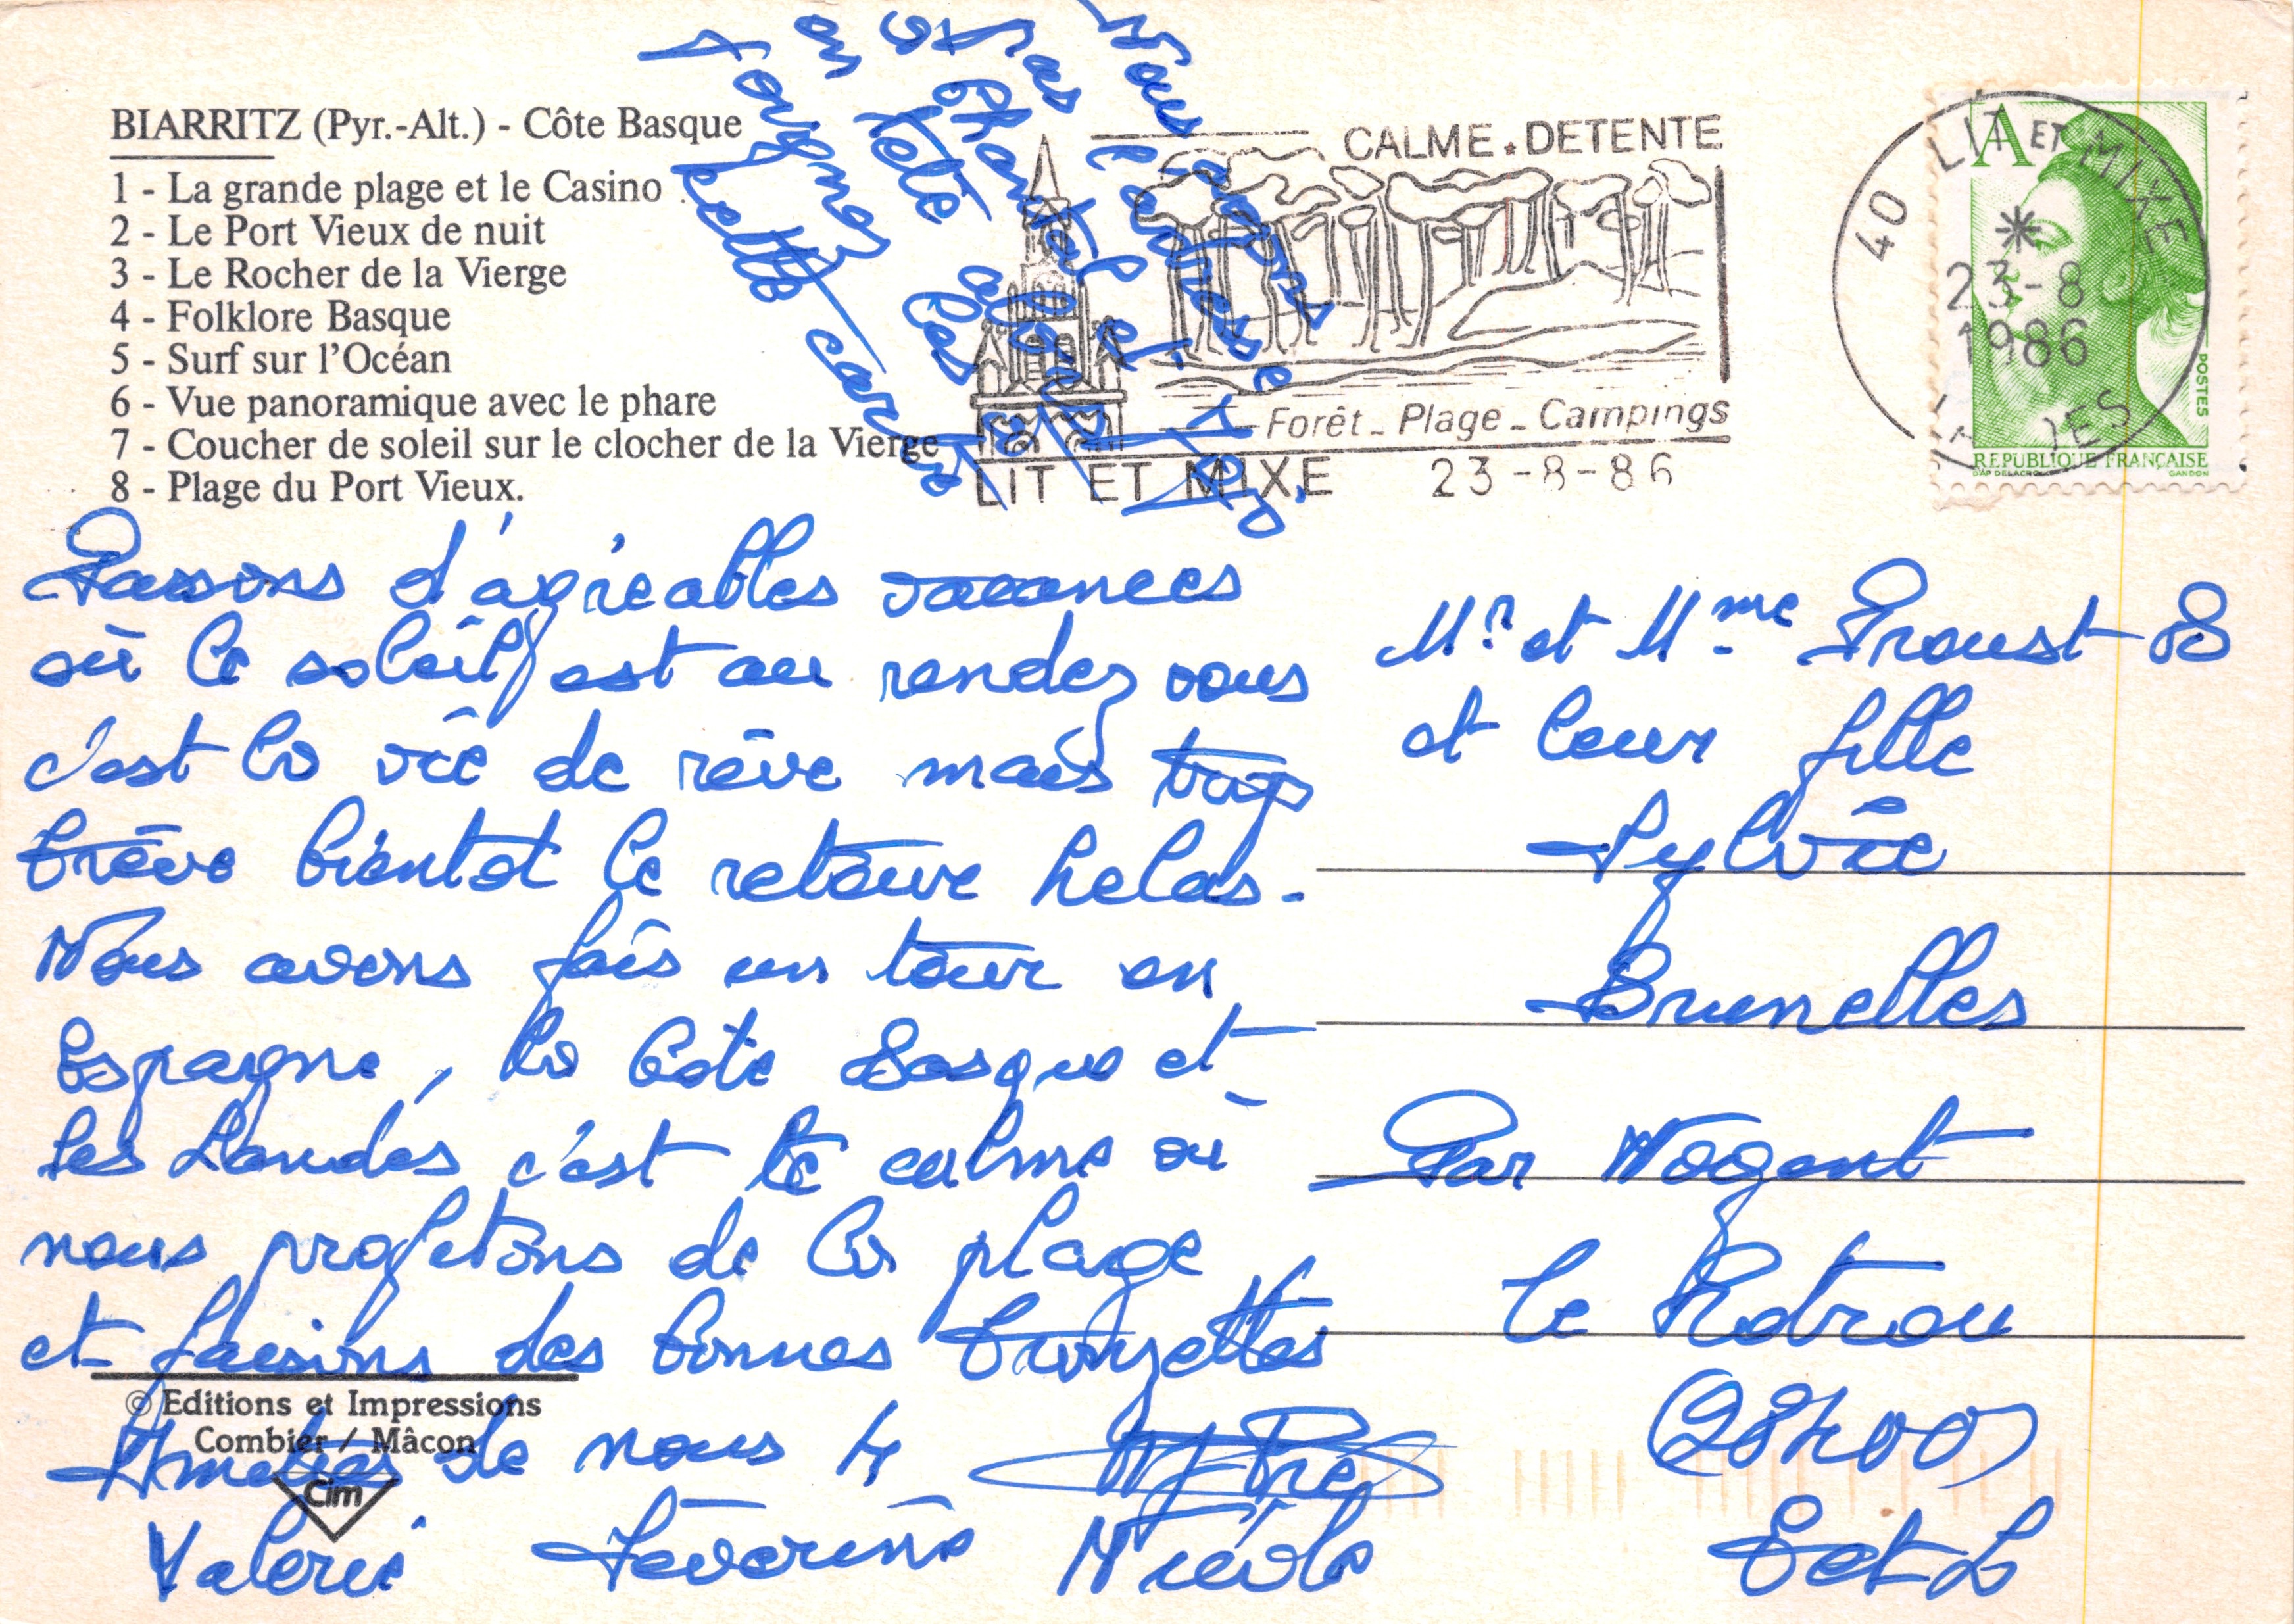 BIARRITZ (Pyr.-Alt.) - Côte Basque
1 - La grande plage et le Casino
2 - Le Port Vieux de nuit
3 - Le Rocher de la Vierge
4 - Folklore Basque
5 - Surf sur l'Océan
6 - Vue panoramique avec le phare
7 - Coucher de soleil sur le clocher de la Vierge
8 - Plage du Port Vieux.
Nous avons
pas l'adresse
a Chantal et
en tete alors
Joignez les
cette carte
CALME.DETENTE
Forêt - Plage - Campings
LIT ET MIXE 23-8-86
40 LIT ET MIXE
23-8
1986
A
POSTES
REPUBLIQUE FRANÇAISE
D'AP DELACROIX GANDON
Passons d'agréables vacances
où le soleil est au rendez vous
c'est la vie de rêve mais trop
brève bientot le retour helas.
Nous avons fais un tour en
Espagne, la Côte Basque et
les Landes c'est le calme où
nous profitons de la plage
et faisons des bonnes bronzettes
Amitiés de nous 4
Valerie Séverine Nicole
© Editions et Impressions
Combier / Mâcon
Cim
Mr. et Mme Proust
et leur fille
Sylvie
Brunelles
Par Nogent
le Rotrou
(28400)
E et L